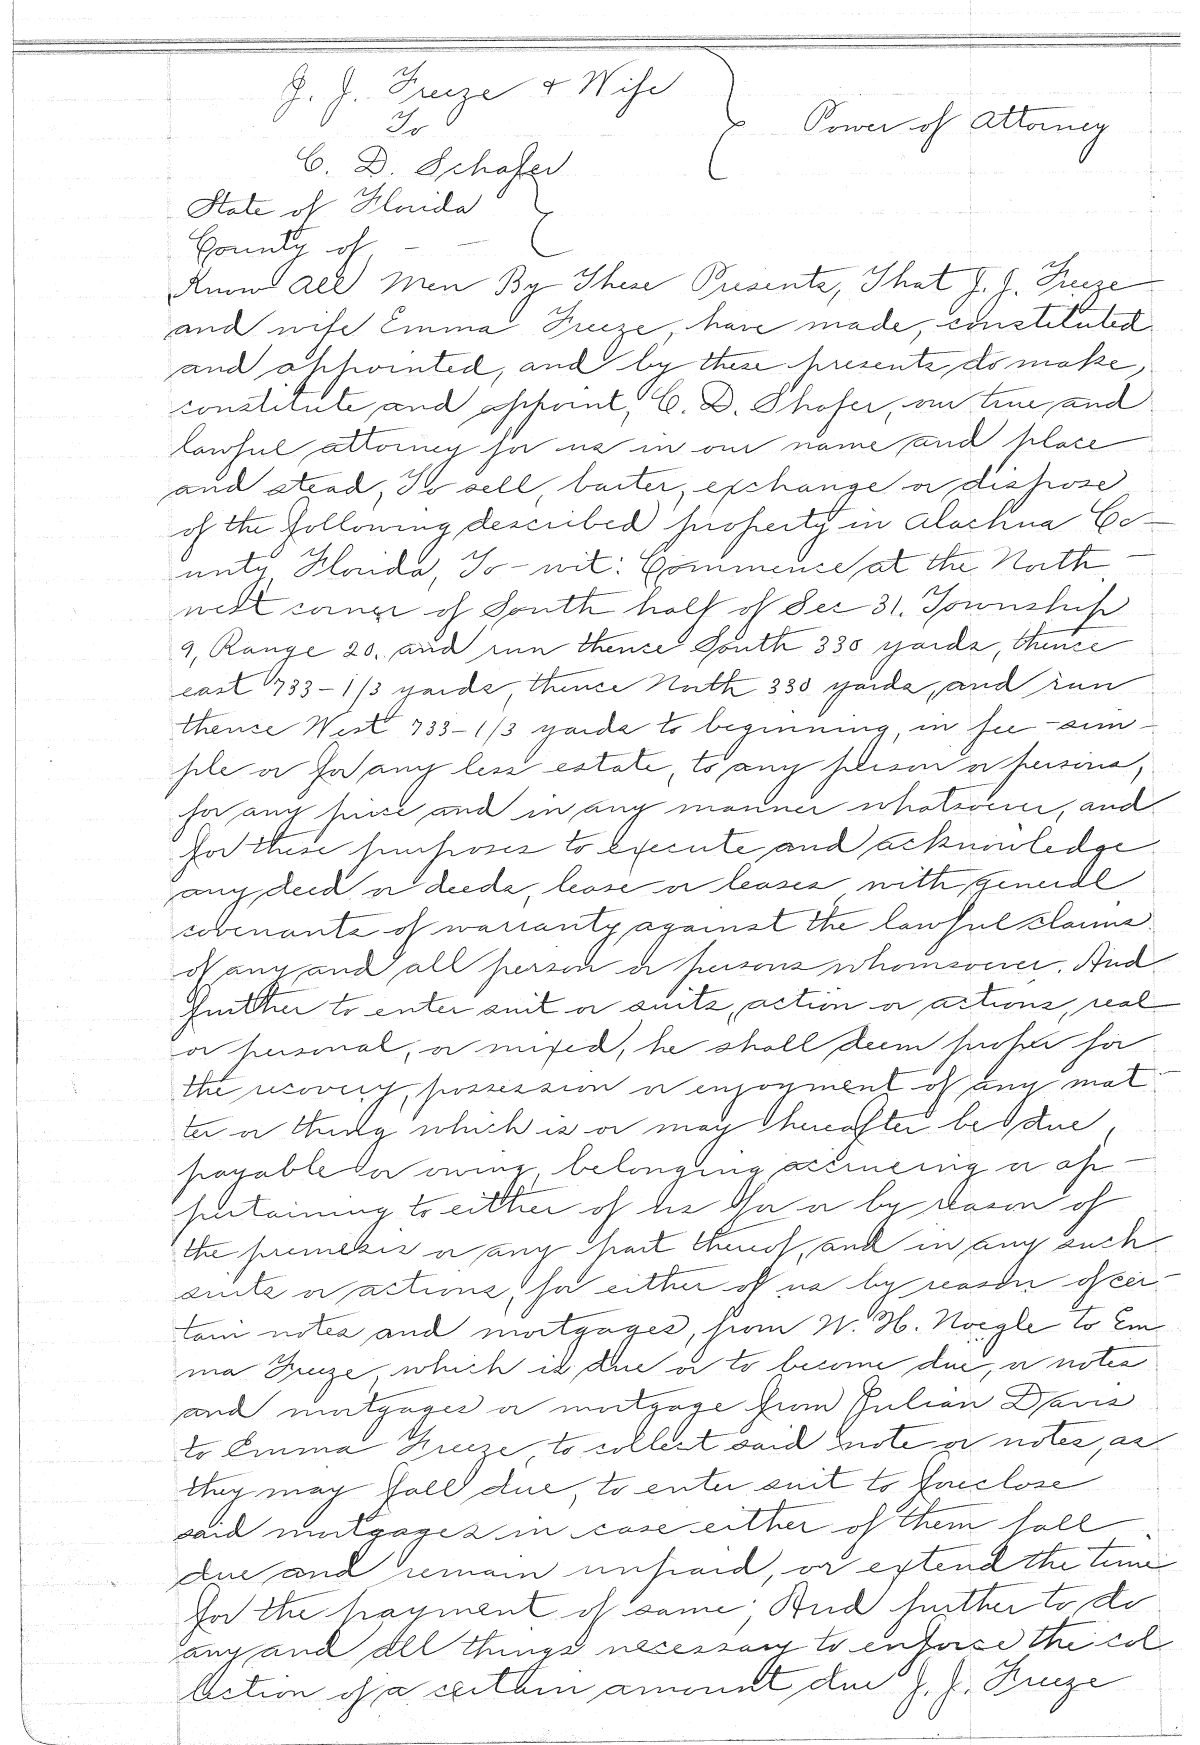 J. J. Freeze & Wife
To
Power of Attorney
C. D. Schafer
State of Florida
County of - -
Know All Men By These Presents, That J. J. Freeze
and wife Emma Freeze, have made, constituted
and appointed, and by these presents do make,
constitute and appoint, C. D. Shafer, our true and
lawful attorney for us in our name and place
and stead, To sell, barter, exchange or dispose
of the following described property in Alachua Co-
unty, Florida, To-wit: Commence at the North
west corner of South half of Sec 31. Township
9, Range 20. and run thence South 330 yards, thence
east 733-1/3 yards, thence North 330 yards, and run
thence West 733-1/3 yards to beginning, in fee-sim-
ple or for any less estate, to any person or persons,
for any price and in any manner whatsoever, and
for these purposes to execute and acknowledge
any deed or deeds, lease or leases, with general
covenants of warranty against the lawful claims
of any and all person or persons whomsoever. And
further to enter suit or suits, action or actions, real
or personal, or mixed, he shall deem proper for
the recovery, possession or enjoyment of any mat-
ter or thing which is or may hereafter be due,
payable or owing, belonging accrueing or ap-
pertaining to either of us for or by reason of
the premesis or any part thereof, and in any such
suits or actions, for either of us by reason of cer-
tain notes and mortgages, from W. H. Noegle to Em
ma Freeze, which is due or to become due, or notes
and mortgages or mortgage from Julian Davis
to Emma Freeze, to collect said note or notes, as
they may fall due, to enter suit to foreclose
said mortgages in case either of them fall
due and remain unpaid, or extend the time
for the payment of same; And further to do
any and all things necessary to enforce the col
lection of a certain amount due J. J. Freeze